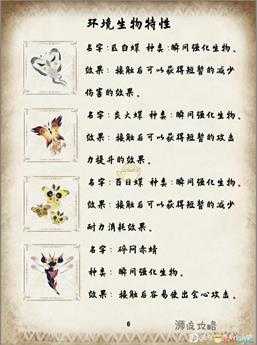 环境生物特性
名字:巨白蝶 种类:瞬间强化生物。
效果:接触后可以获得短暂的减少
伤害的效果。
名字:炎火蝶 种类:瞬间强化生物。
效果:接触后可以获得短暂的攻击
力提升的效果。
名字:百日蝶 种类:瞬间强化生物。
效果:接触后可以获得短暂的减少
耐力消耗效果。
名字:砰冈赤蜻
种类:瞬间强化生物。
效果:接触后容易使出会心攻击。
6